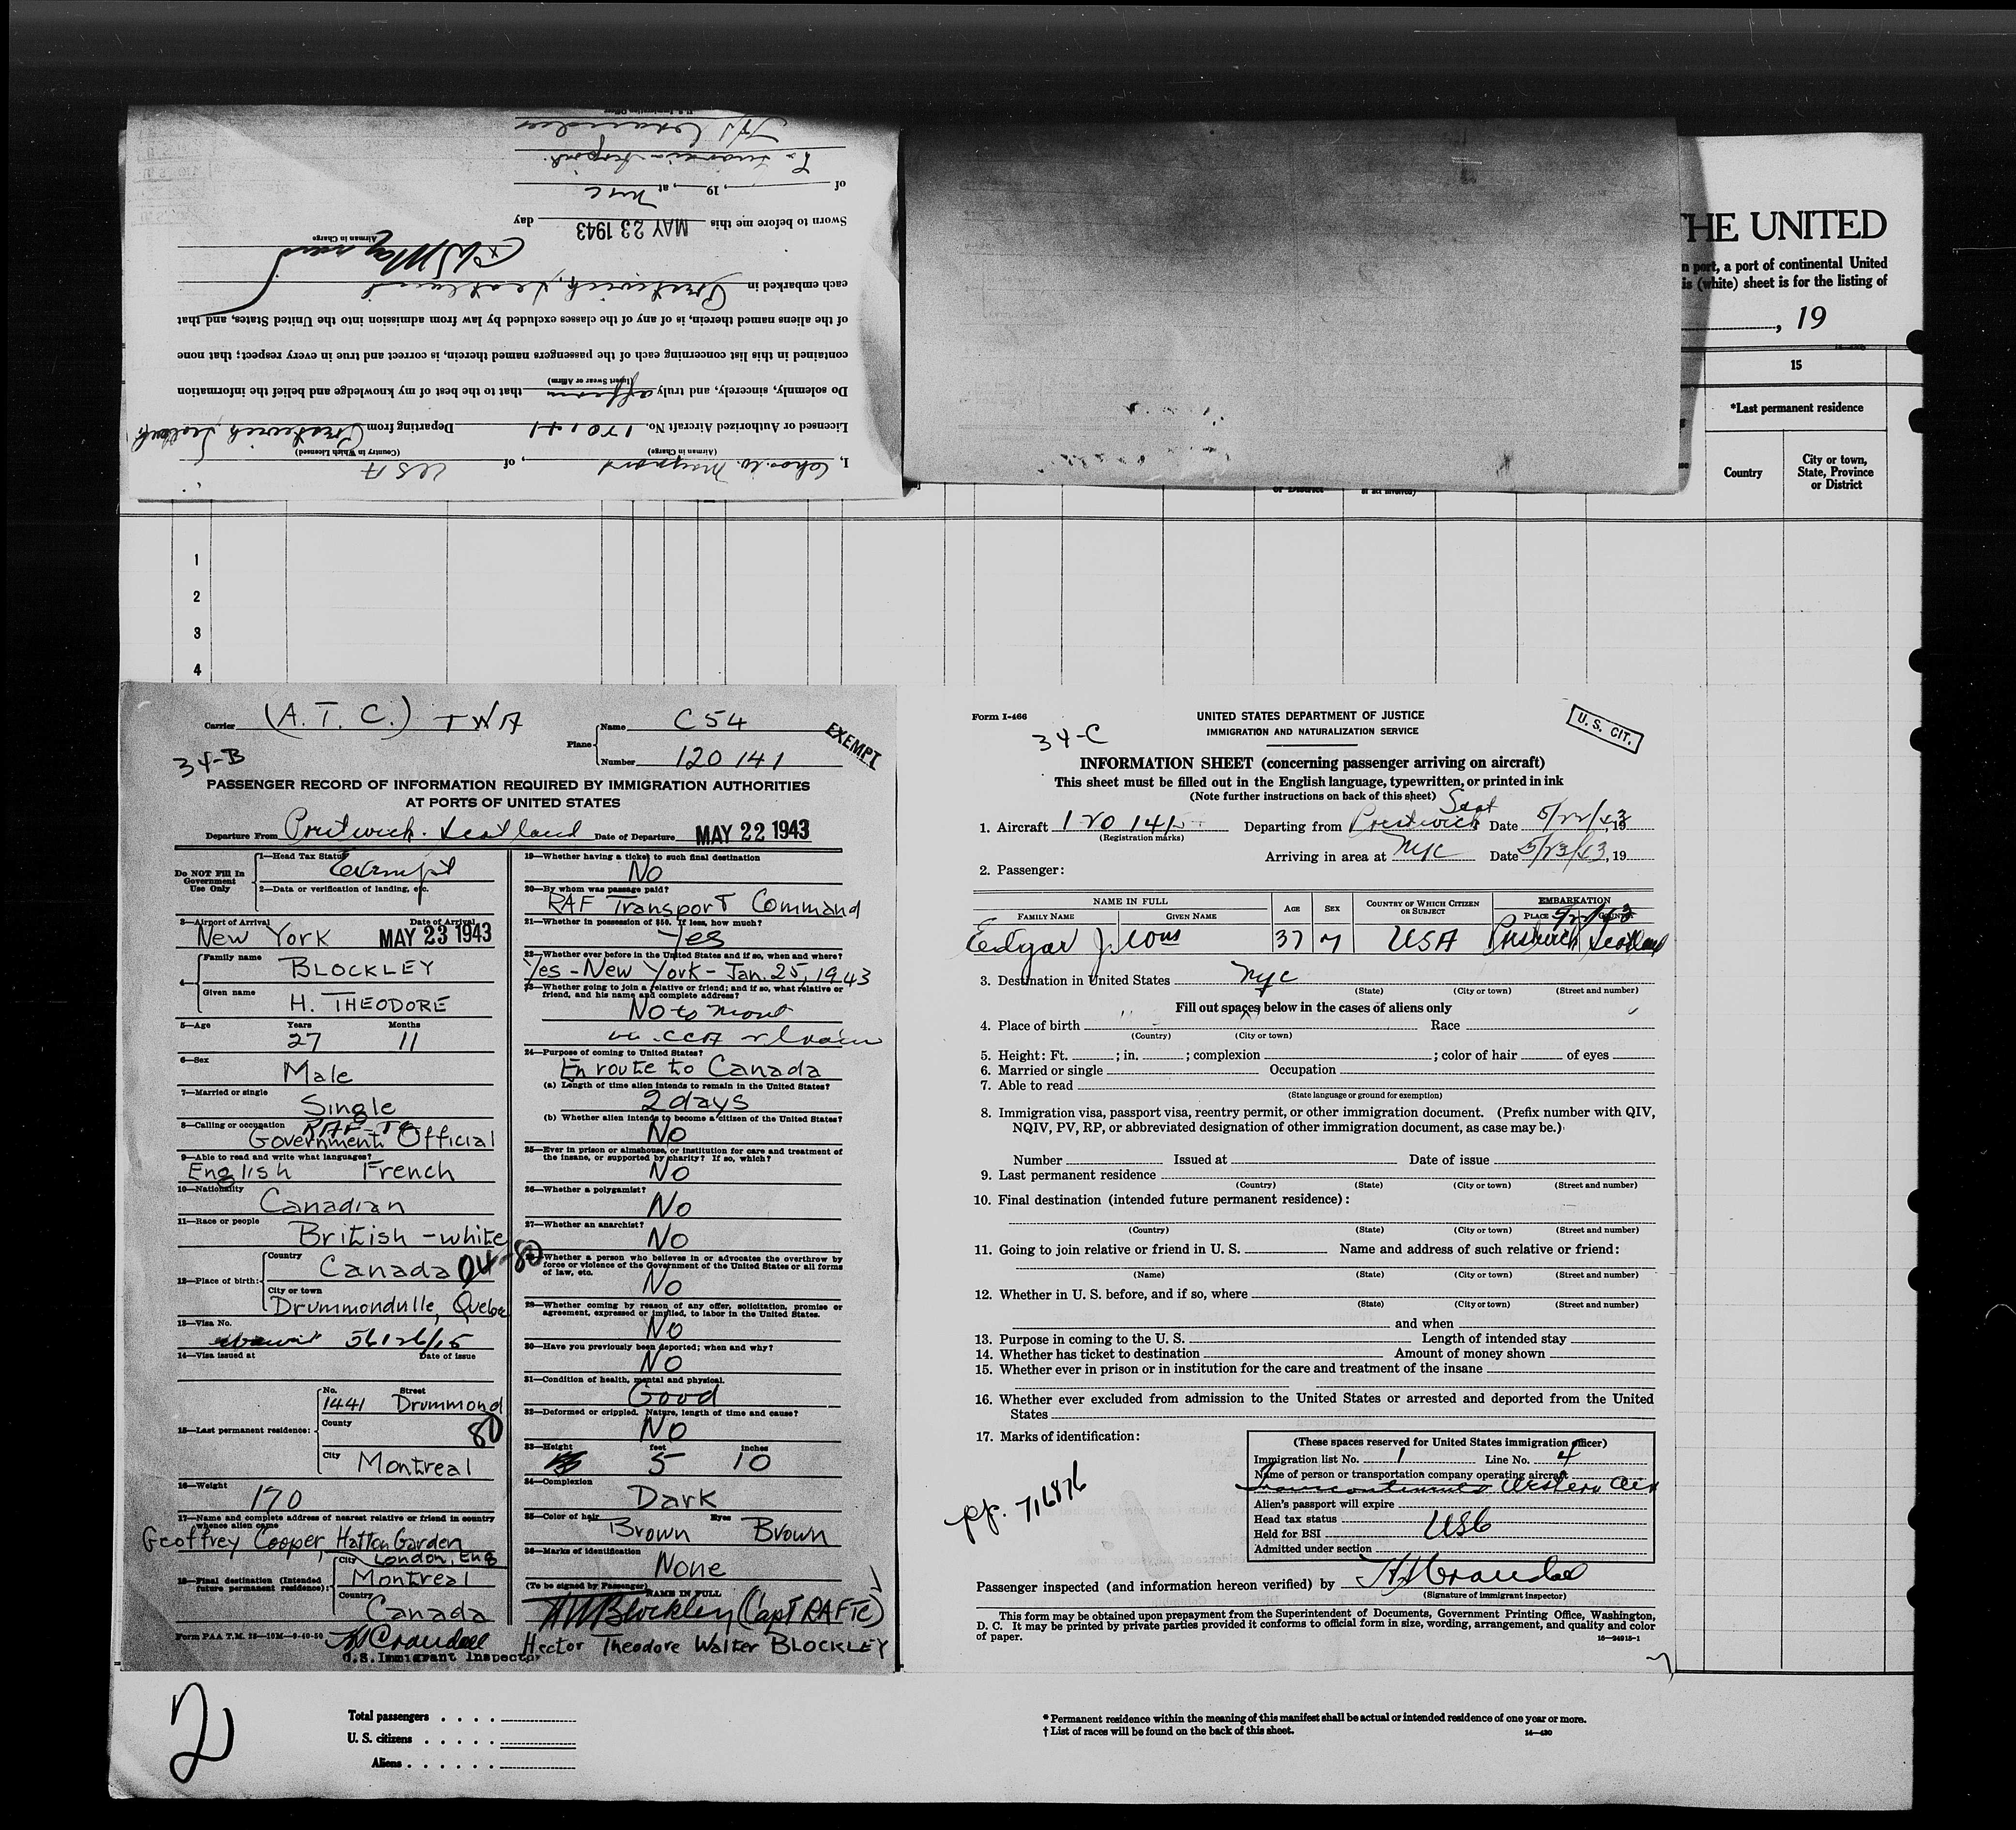 I, Chas. W. Maynard, of USA
(Airman in Charge) (Country in Which Licensed)
Licensed or Authorized Aircraft No. 120141 Departing from Prestwick, Scotland
Do solemnly, sincerely, and truly affirm that to the best of my knowledge and belief the information
(Insert Swear or Affirm)
contained in this list concerning each of the passengers named therein, is correct and true in every respect; that none
of the aliens named therein, is of any of the classes excluded by law from admission into the United States, and that
each embarked in Prestwick, Scotland
Airman in Charge
Sworn to before me this MAY 23 1943 day
of , 19 , at NYC
La Guardia Airport.
THE UNITED
n port, a port of continental United
is (white) sheet is for the listing of
, 19
15
*Last permanent residence
Country
City or town,
State, Province
or District
1
2
3
4
Carrier (A. T. C.) TWA
Plane Name C54
Number 120 141
EXEMPT
34-B
PASSENGER RECORD OF INFORMATION REQUIRED BY IMMIGRATION AUTHORITIES
AT PORTS OF UNITED STATES
Departure From Prestwick. Scotland Date of Departure MAY 22 1943
Do NOT Fill In
Government
Use Only
1—Head Tax Status Exempt
2—Data or verification of landing, etc.
3—Airport of Arrival Date of Arrival
New York MAY 23 1943
4— Family name BLOCKLEY
Given name H. THEODORE
5—Age Years Months
27 11
6—Sex
Male
7—Married or single
Single
8—Calling or occupation RAF-TC
Government Official
9—Able to read and write what languages?
English French
10—Nationality
Canadian
11—Race or people
British - white
12—Place of birth: Country
Canada 04-80
City or town
Drummondville, Quebec
13—Visa No.
56126/15
14—Visa issued at Date of issue
15—Last permanent residence: No. Street
1441 Drummond
County
80
City Montreal
16—Weight
170
17—Name and complete address of nearest relative or friend in country
whence alien came
Geoffrey Cooper, Hatton Garden
London, Eng
18—Final destination (Intended
future permanent residence): City Montreal
Country Canada
Form PAA T.M. 25—10M—9-40-50 HCrandall
U.S. Immigrant Inspector
19—Whether having a ticket to such final destination
No
20—By whom was passage paid?
RAF Transport Command
21—Whether in possession of $50. If less, how much?
Yes
22—Whether ever before in the United States and if so, when and where?
Yes - New York - Jan. 25, 1943
23—Whether going to join a relative or friend; and if so, what relative or
friend, and his name and complete address?
No to mont
24—Purpose of coming to United States?
En route to Canada
(a) Length of time alien intends to remain in the United States?
2 days
(b) Whether alien intends to become a citizen of the United States?
No
25—Ever in prison or almshouse, or institution for care and treatment of
the insane, or supported by charity? If so, which?
No
26—Whether a polygamist?
No
27—Whether an anarchist?
No
28—Whether a person who believes in or advocates the overthrow by
force or violence of the Government of the United States or all forms
of law, etc.
No
29—Whether coming by reason of any offer, solicitation, promise or
agreement, expressed or implied, to labor in the United States.
No
30—Have you previously been deported; when and why?
No
31—Condition of health, mental and physical.
Good
32—Deformed or crippled. Nature, length of time and cause?
No
33—Height feet inches
5 10
34—Complexion
Dark
35—Color of hair Eyes
Brown Brown
36—Marks of identification
None
(To be signed by Passenger) NAME IN FULL
HTWBlockley (Capt RAFTC)
Hector Theodore Walter BLOCKLEY
Form I-466
34-C
UNITED STATES DEPARTMENT OF JUSTICE
IMMIGRATION AND NATURALIZATION SERVICE
U. S. CIT.
INFORMATION SHEET (concerning passenger arriving on aircraft)
This sheet must be filled out in the English language, typewritten, or printed in ink
(Note further instructions on back of this sheet)
1. Aircraft 120 141 Departing from Prestwick Scot Date 5/22/43, 19
(Registration marks)
Arriving in area at NYC Date 5/23/43, 19
2. Passenger:
NAME IN FULL
FAMILY NAME GIVEN NAME
AGE SEX
COUNTRY OF WHICH CITIZEN
OR SUBJECT
EMBARKATION
PLACE COUNTRY
5/22/43
Edgar 37 M USA Prestwick Scotland
3. Destination in United States NYC
(State) (City or town) (Street and number)
Fill out spaces below in the cases of aliens only
4. Place of birth Race
(Country) (City or town)
5. Height: Ft. ; in. ; complexion ; color of hair of eyes
6. Married or single Occupation
7. Able to read
(State language or ground for exemption)
8. Immigration visa, passport visa, reentry permit, or other immigration document. (Prefix number with QIV,
NQIV, PV, RP, or abbreviated designation of other immigration document, as case may be.)
Number Issued at Date of issue
9. Last permanent residence
(Country) (State) (City or town) (Street and number)
10. Final destination (intended future permanent residence):
(Country) (State) (City or town) (Street and number)
11. Going to join relative or friend in U. S. Name and address of such relative or friend:
(Name) (State) (City or town) (Street and number)
12. Whether in U. S. before, and if so, where
(State) (City or town) (Street and number)
and when
13. Purpose in coming to the U. S. Length of intended stay
14. Whether has ticket to destination Amount of money shown
15. Whether ever in prison or in institution for the care and treatment of the insane
16. Whether ever excluded from admission to the United States or arrested and deported from the United
States
17. Marks of identification:
pp. 716876
(These spaces reserved for United States immigration officer)
Immigration list No. 1 Line No. 4
Name of person or transportation company operating aircraft
Transcontinental Western Air
Alien's passport will expire
Head tax status USC
Held for BSI
Admitted under section
Passenger inspected (and information hereon verified) by HCrandall
(Signature of immigrant inspector)
This form may be obtained upon prepayment from the Superintendent of Documents, Government Printing Office, Washington,
D. C. It may be printed by private parties provided it conforms to official form in size, wording, arrangement, and quality and color
of paper. 16—24915-1
2
Total passengers
U. S. citizens
Aliens
* Permanent residence within the meaning of this manifest shall be actual or intended residence of one year or more.
† List of races will be found on the back of this sheet. 14—430